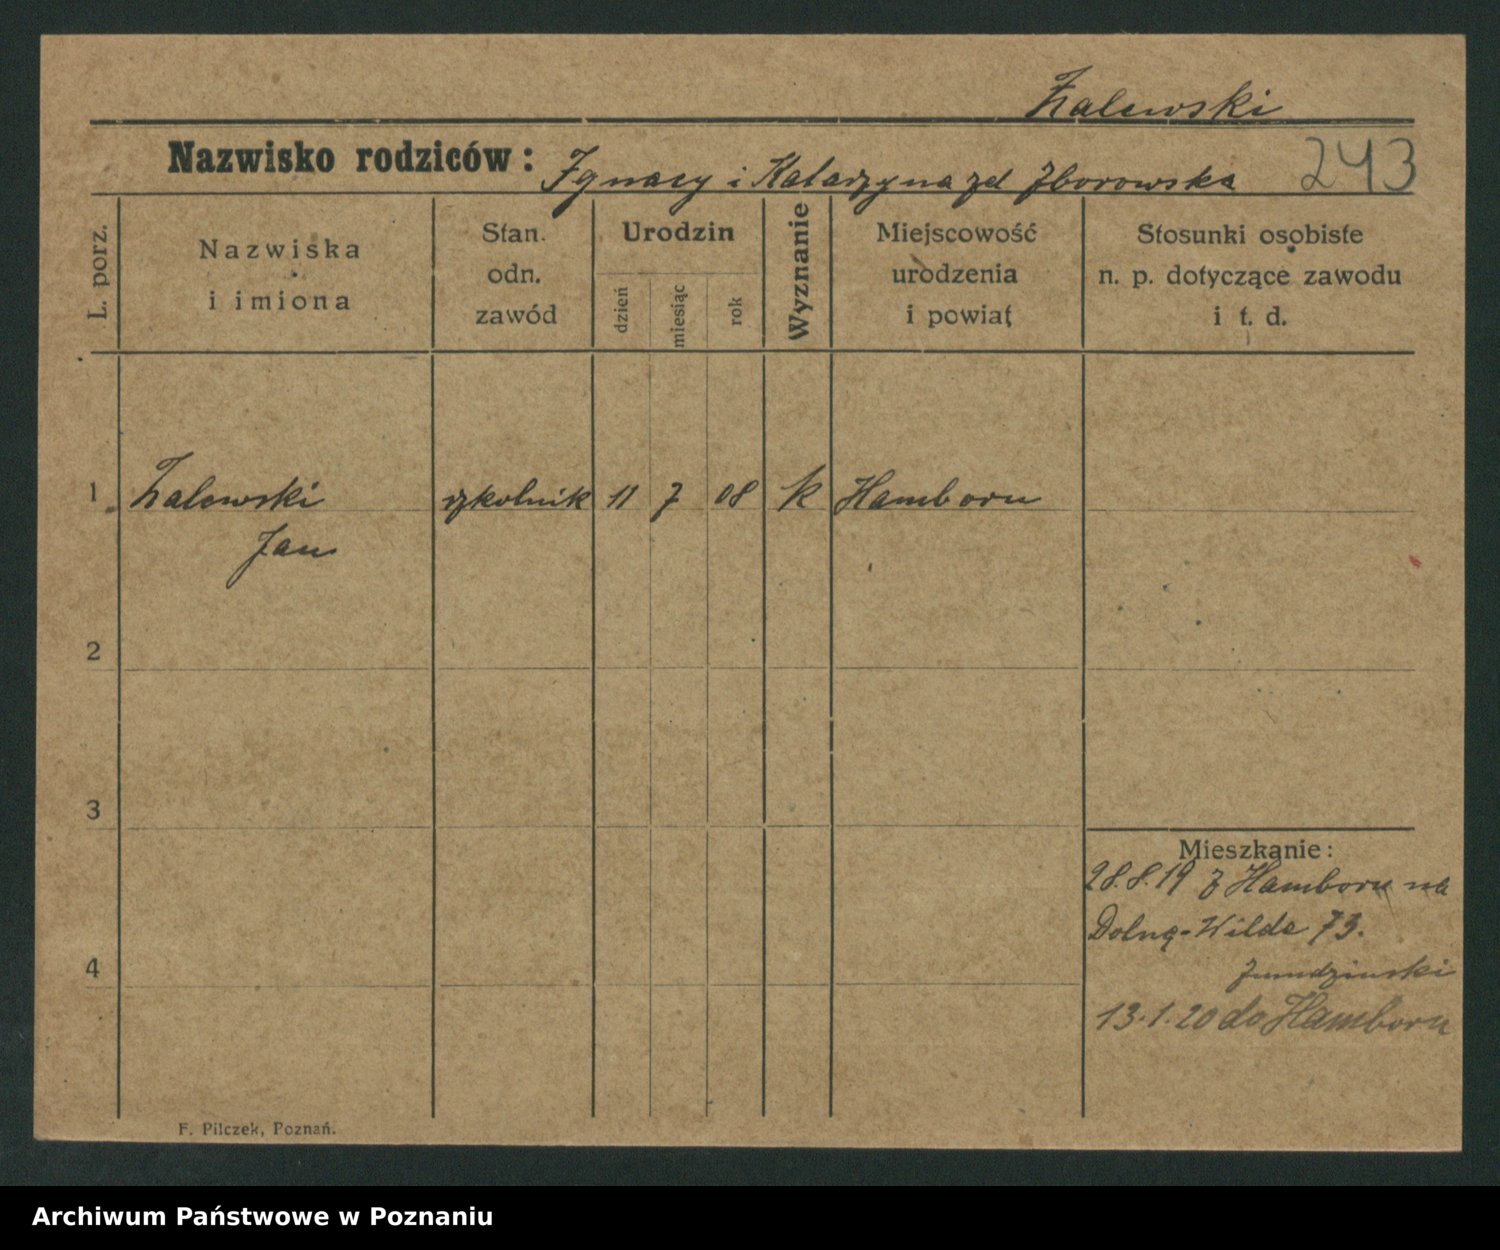 Zalewski
Nazwisko rodziców: Ignacy i Katarzyna zd Zborowska 243
L. porz.
Nazwiska
i imiona
Stan.
odn.
zawód
Urodzin
dzień
miesiąc
rok
Wyznanie
Miejscowość
urodzenia
i powiat
Stosunki osobiste
n. p. dotyczące zawodu
i t. d.
1 Zalewski szkolnik 11 7 08 k Hamborn
Jan
2
3
Mieszkanie:
28.8.19 z Hamborn na
Dolną-Wilda 73.
4
13.1.20 do Hamborn
F. Pilczek, Poznań.
Archiwum Państwowe w Poznaniu